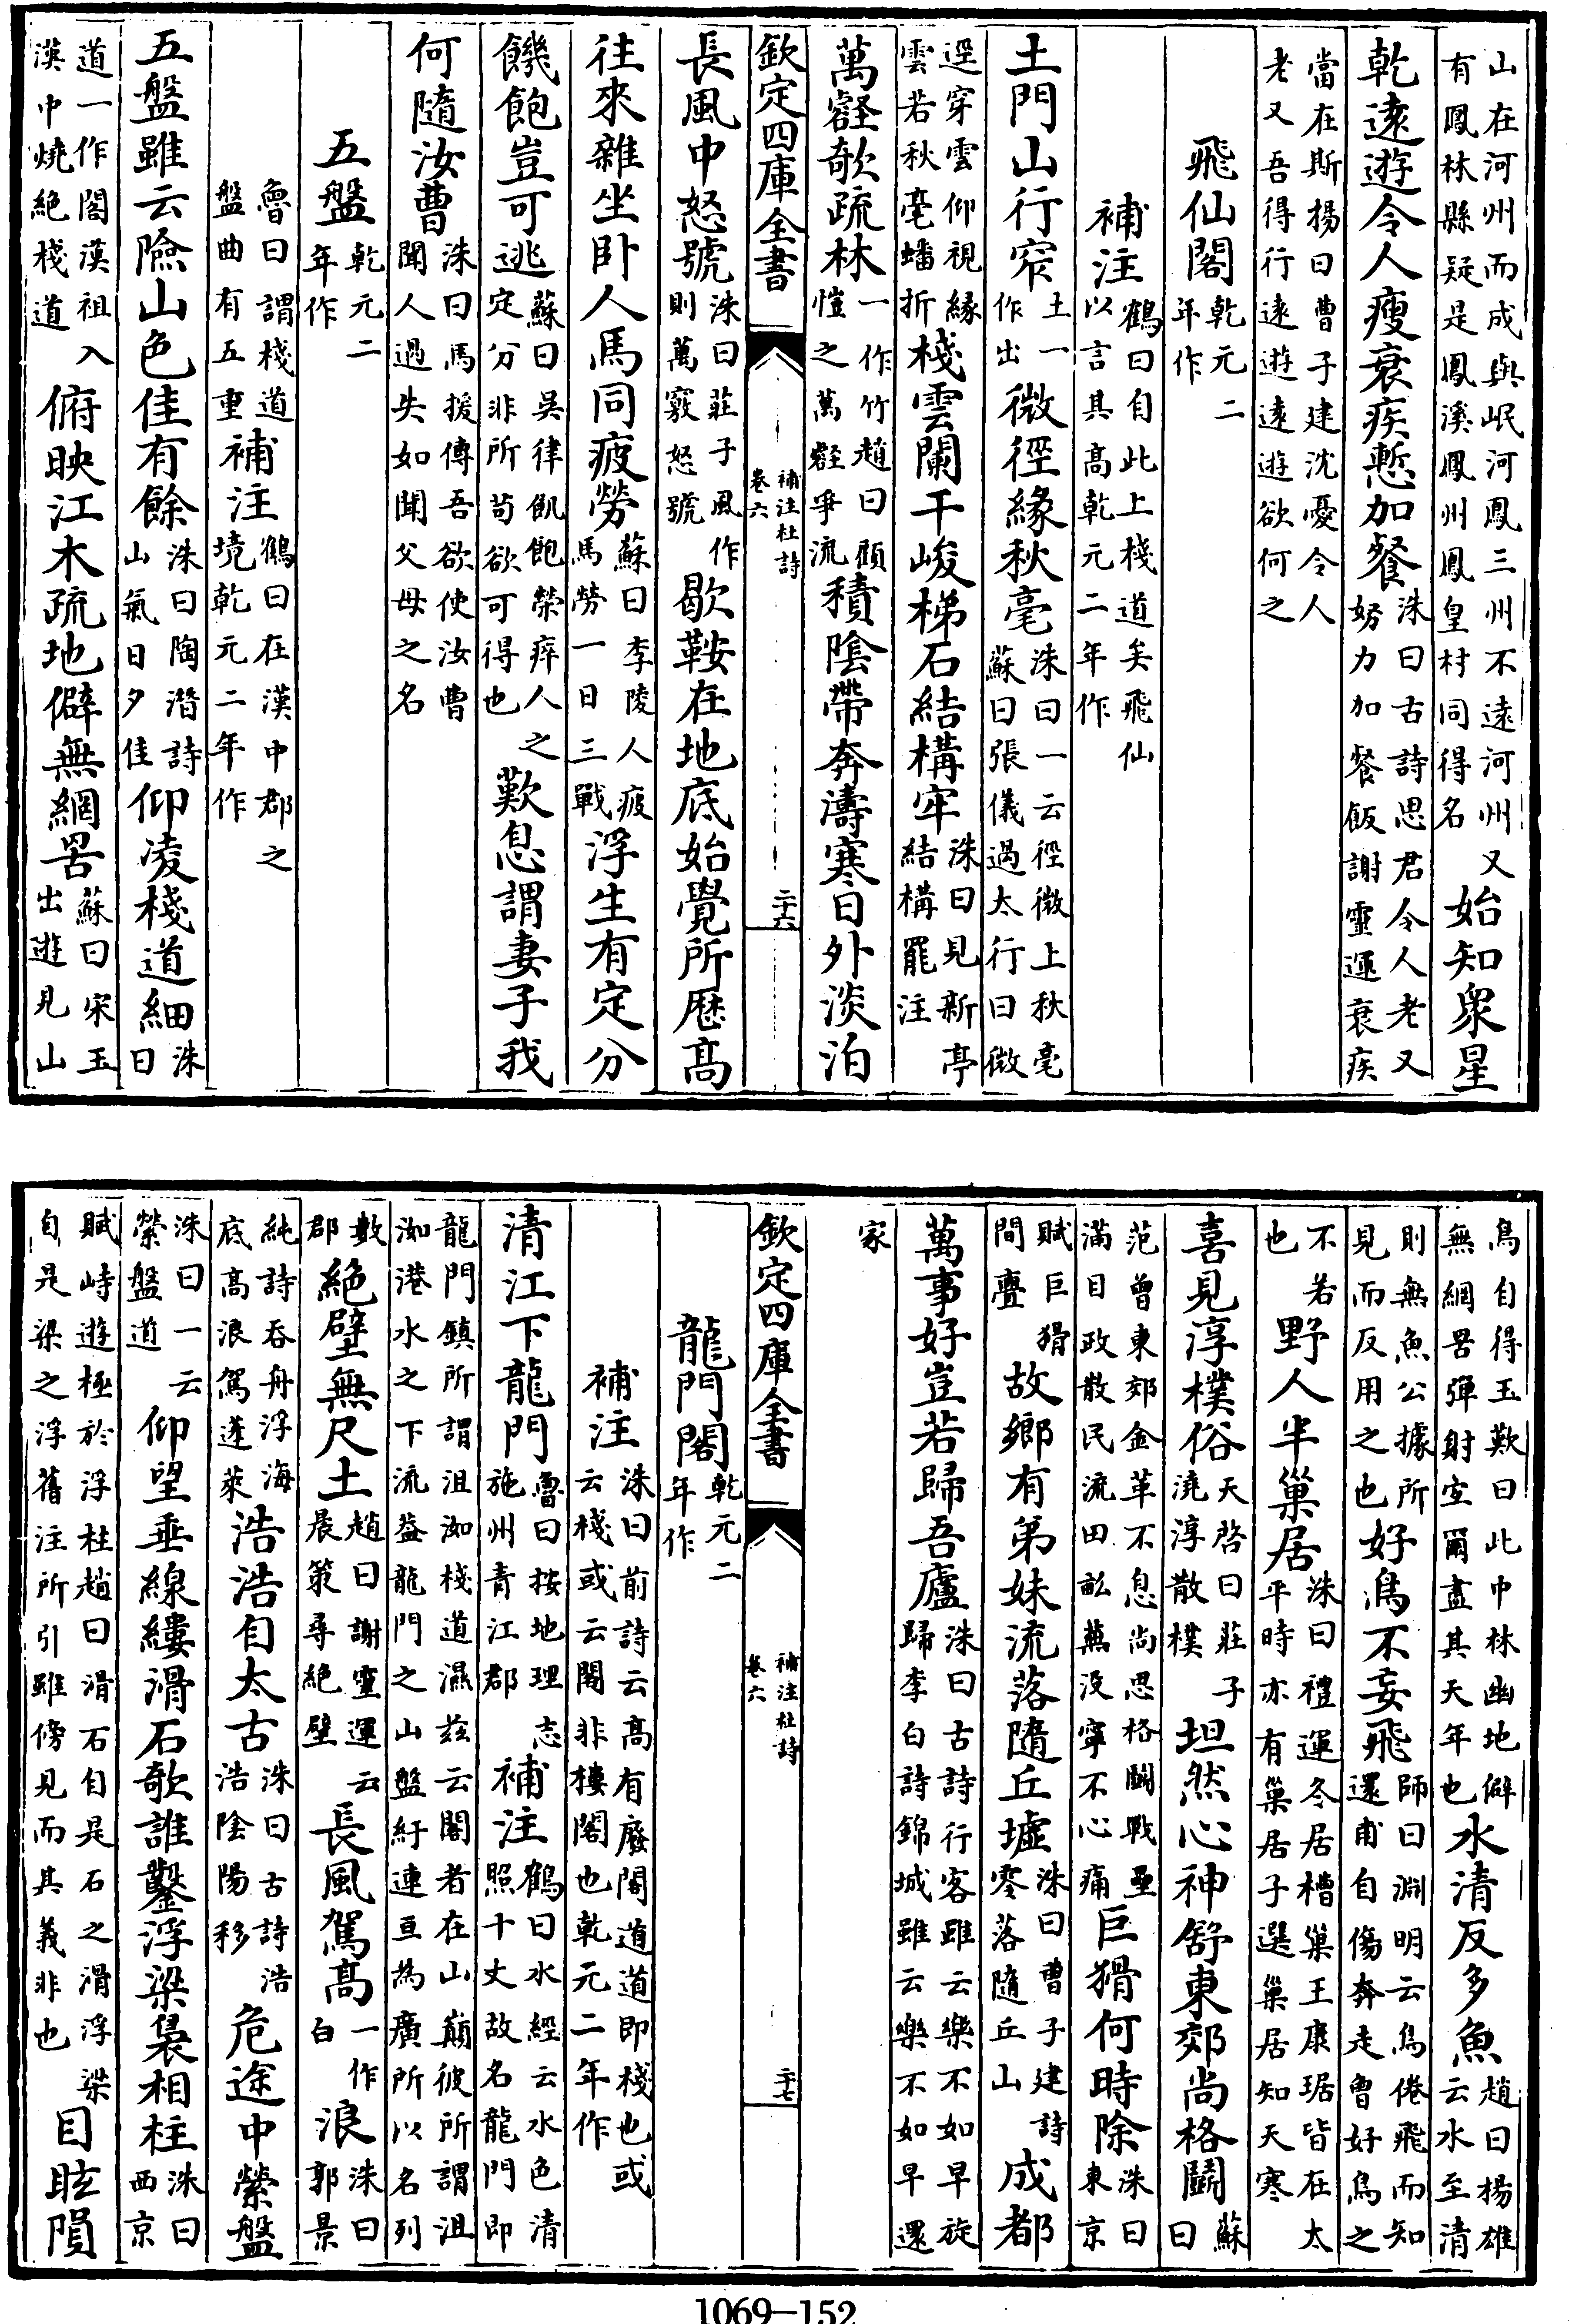 山在河州而成與岷河鳳三州不遠河州又
有鳳林縣疑是鳳溪鳳州鳳皇村同得名
始知衆星
乾遠遊令人瘦衰疾慙加餐
洙曰古詩思君令人老又
努力加餐飯謝靈運衰疾
當在斯揚曰曹子建沈憂令人
老又吾得行遠遊遠遊欲何之
飛仙閣
乾元二
年作
補注
鶴曰自此上棧道矣飛仙
以言其高乾元二年作
土門山行窄
土一
作出
微徑緣秋毫
洙曰一云徑微上秋毫
蘇曰張儀過太行曰微
逕穿雲仰視緣
雲若秋毫蟠折
棧雲闌干峻梯石結構牢
洙曰見新亭
結構罷注
萬壑欹疏林
一作竹趙曰顧
愷之萬壑爭流
積陰帶奔濤寒日外淡泊
欽定四庫全書
補注杜詩
卷六
二十六
長風中怒號
洙曰莊子風作
則萬竅怒號
歇鞍在地底始覺所歷高
往來雜坐卧人馬同疲勞
蘇曰李陵人疲
馬勞一日三戰
浮生有定分
饑飽豈可逃
蘇曰吳律飢飽榮瘁人之
定分非所苟欲可得也
歎息謂妻子我
何隨汝曹
洙曰馬援傳吾欲使汝曹
聞人過失如聞父母之名
五盤
乾元二
年作
魯曰謂棧道
盤曲有五重
補注
鶴曰在漢中郡之
境乾元二年作
五盤雖云險山色佳有餘
洙曰陶潛詩
山氣日夕佳
仰凌棧道細
洙
曰
道一作閣漢祖入
漢中燒絶棧道
俯映江木疏地僻無網罟
蘇曰宋玉
出遊見山
鳥自得玉歎曰此中林幽地僻
無網罟彈射空爾盡其天年也
水清反多魚
趙曰揚雄
云水至清
則無魚公據所
見而反用之也
好鳥不妄飛
師曰淵明云鳥倦飛而知
還甫自傷奔走曾好鳥之
不若
也
野人半巢居
洙曰禮運冬居橧巢王康琚皆在太
平時亦有巢居子選巢居知天寒
喜見淳樸俗
天啓曰莊子
澆淳散樸
坦然心神舒東郊尚格鬭
蘇
曰
范曾東郊金革不息尚思格鬭戰壘
滿目政散民流田畝蕪没寧不心痛
巨猾何時除
洙曰
東京
賦巨猾
間亹
故鄉有弟妹流落隨丘墟
洙曰曹子建詩
零落隨丘山
成都
萬事好豈若歸吾廬
洙曰古詩行客雖云樂不如早旋
歸李白詩錦城雖云樂不如早還
家
欽定四庫全書
補注杜詩
卷六
二十七
龍門閣
乾元二
年作
補注
洙曰前詩云高有廢閣道道即棧也或
云棧或云閣非樓閣也乾元二年作
清江下龍門
魯曰按地理志
施州青江郡
補注
鶴曰水經云水色清
照十丈故名龍門即
龍門鎮所謂沮洳棧道濕兹云閣者在山巔彼所謂沮
洳港水之下流益龍門之山盤紆連亘為廣所以名列
數
郡
絶壁無尺土
趙曰謝靈運云
晨策尋絶壁
長風駕高
一作
白
浪
洙曰
郭景
純詩吞舟浮海
底高浪駕蓬萊
浩浩自太古
洙曰古詩浩
浩陰陽移
危途中縈盤
洙曰一云
縈盤道
仰望垂線縷滑石欹誰鑿浮梁裊相柱
洙曰
西京
賦峙遊極於浮柱趙曰滑石自是石之滑浮梁
自是梁之浮舊注所引雖傍見而其義非也
目眩隕
1069—152